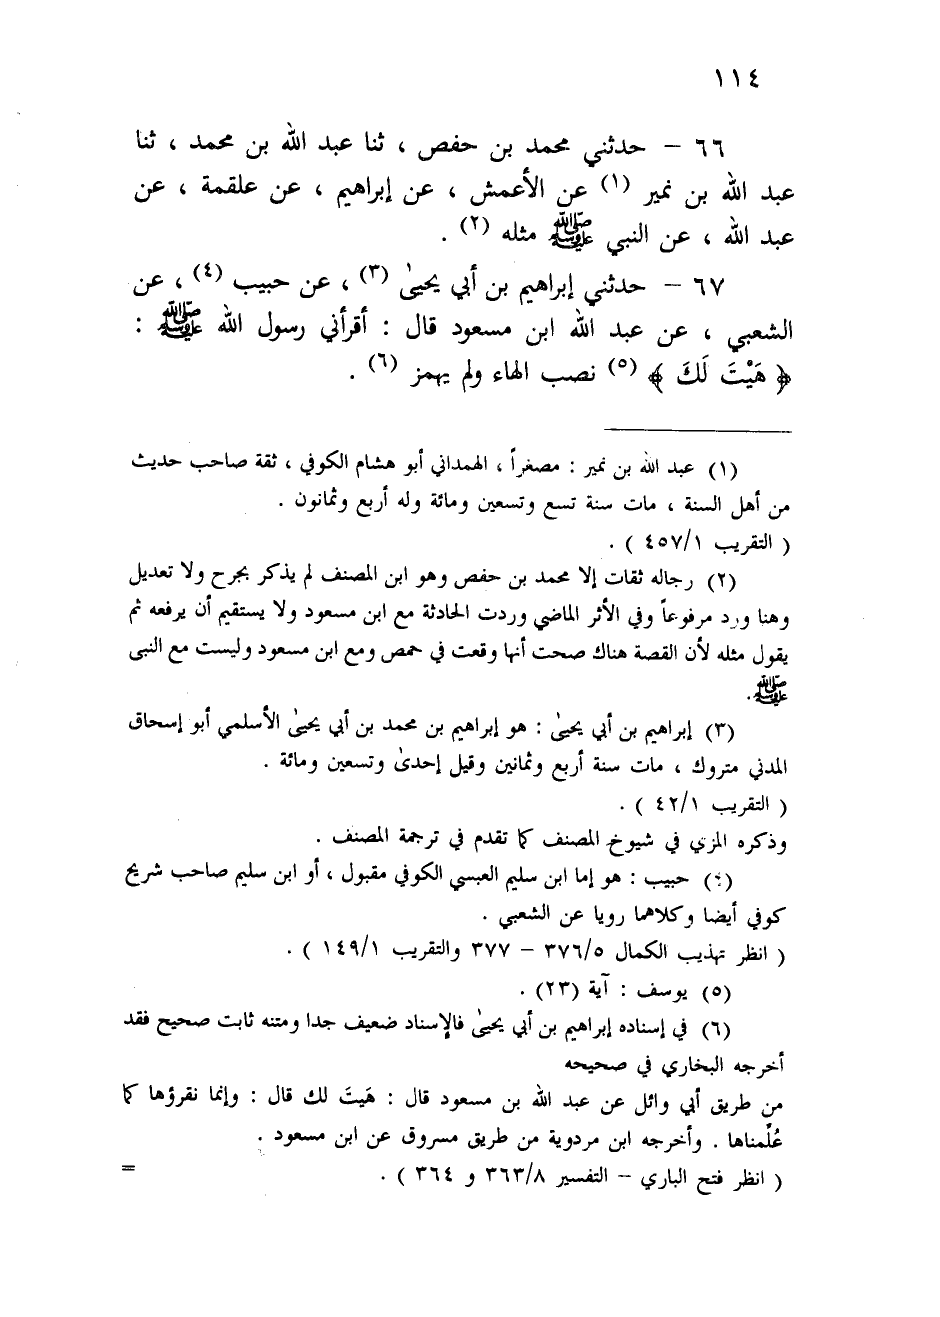 ١١٤
٦٦ – حدثني محمد بن حفص ، ثنا عبد الله بن محمد ، ثنا
عبد الله بن نمير (١) عن الأعمش ، عن إبراهيم ، عن علقمة ، عن
عبد الله ، عن النبي ﷺ مثله (٢) .
٦٧ – حدثني إبراهيم بن أبي يحيىٰ (٣) ، عن حبيب (٤) ، عن
الشعبي ، عن عبد الله ابن مسعود قال : أقرأني رسول الله ﷺ :
﴿ هَيْتَ لَكَ ﴾ (٥) نصب الهاء ولم يهمز (٦) .
(١) عبد الله بن نمير : مصغراً ، الهمداني أبو هشام الكوفي ، ثقة صاحب حديث
من أهل السنة ، مات سنة تسع وتسعين ومائة وله أربع وثمانون .
( التقريب ٤٥٧/١ ) .
(٢) رجاله ثقات إلا محمد بن حفص وهو ابن المصنف لم يذكر بجرح ولا تعديل
وهنا ورد مرفوعاً وفي الأثر الماضي وردت الحادثة مع ابن مسعود ولا يستقيم أن يرفعه ثم
يقول مثله لأن القصة هناك صحت أنها وقعت في حمص ومع ابن مسعود وليست مع النبى
ﷺ.
(٣) إبراهيم بن أبي يحيىٰ : هو إبراهيم بن محمد بن أبي يحيىٰ الأسلمي أبو إسحاق
المدني متروك ، مات سنة أربع وثمانين وقيل إحدىٰ وتسعين ومائة .
( التقريب ٤٢/١ ) .
وذكره المزي في شيوخ المصنف كما تقدم في ترجمة المصنف .
(٤) حبيب : هو إما ابن سليم العبسي الكوفي مقبول ، أو ابن سليم صاحب شريح
كوفي أيضا وكلاهما رويا عن الشعبي .
( انظر تهذيب الكمال ٣٧٦/٥ – ٣٧٧ والتقريب ١٤٩/١ ) .
(٥) يوسف : آية (٢٣) .
(٦) في إسناده إبراهيم بن أبي يحيىٰ فالإسناد ضعيف جدا ومتنه ثابت صحيح فقد
أخرجه البخاري في صحيحه
من طريق أبي وائل عن عبد الله بن مسعود قال : هَيتَ لك قال : وإنما نقرؤها كما
عُلِّمناها . وأخرجه ابن مردوية من طريق مسروق عن ابن مسعود .
( انظر فتح الباري – التفسير ٣٦٣/٨ و ٣٦٤ ) . =